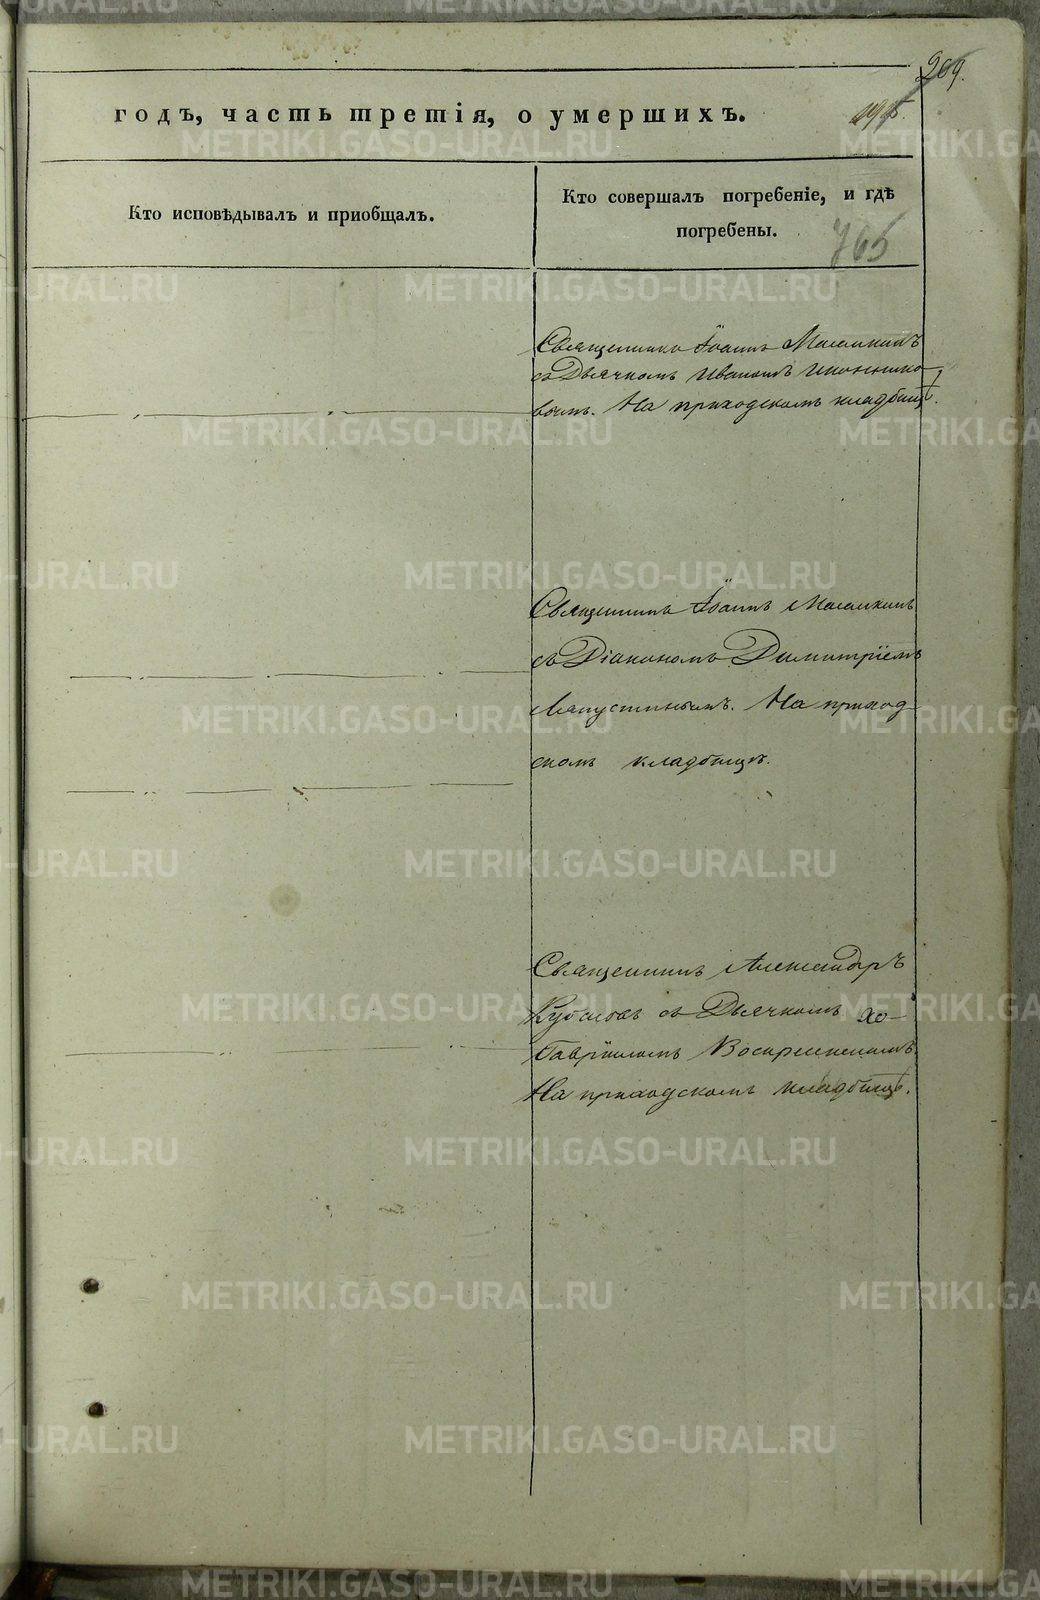 209.
195.
годъ, часть третія, о умершихъ.
Кто исповѣдывалъ и приобщалъ.
Кто совершалъ погребеніе, и гдѣ
погребены.
765
Священникъ Іоаннъ
съ Дьячкомъ Иваномъ Иконнико
вымъ. На приходскомъ кладбищѣ.
Священникъ Іоаннъ
съ Діакономъ Димитріемъ
Ляпустинымъ. На приход
скомъ кладбищѣ.
Священникъ Александръ
съ Дьячкомъ
Гавріиломъ Воскресенскимъ.
На приходскомъ кладбищѣ.
METRIKI.GASO-URAL.RU